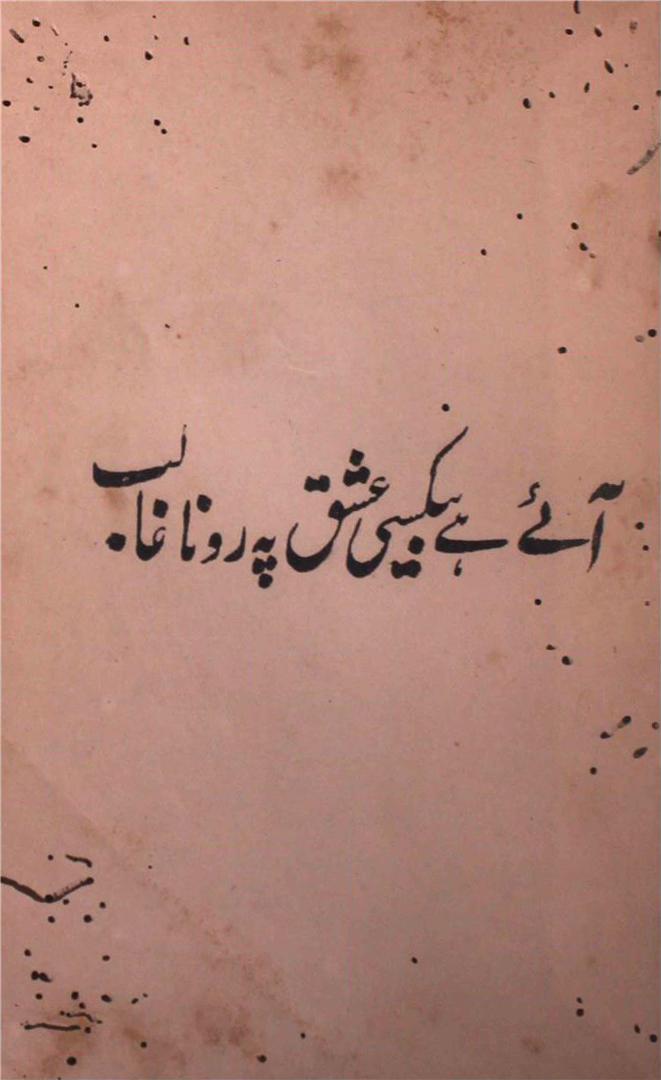 آئے ہے بیکسی عشق پہ رونا غالب